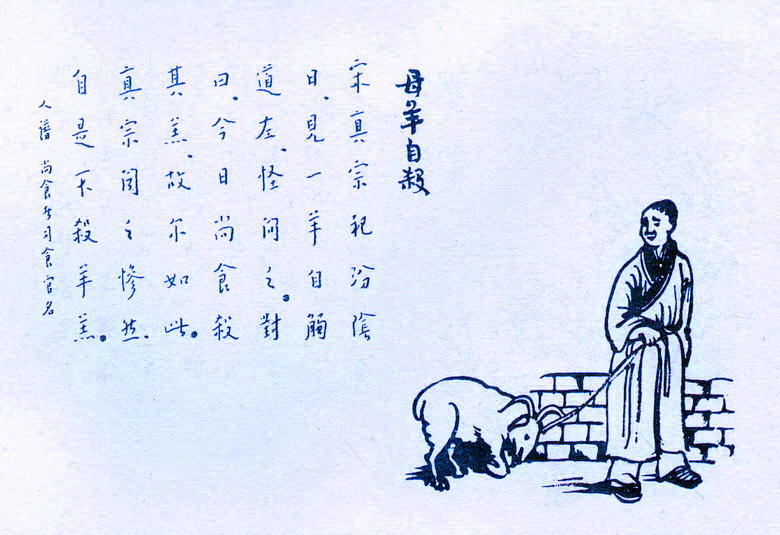 母羊自殺
宋真宗祀汾陰
日、見一羊自觸
道左、怪問之。對
曰、今日尚食殺
其羔、故尔如此。
真宗聞之慘然、
自是不殺羊羔。
人譜 尚食專司食官名